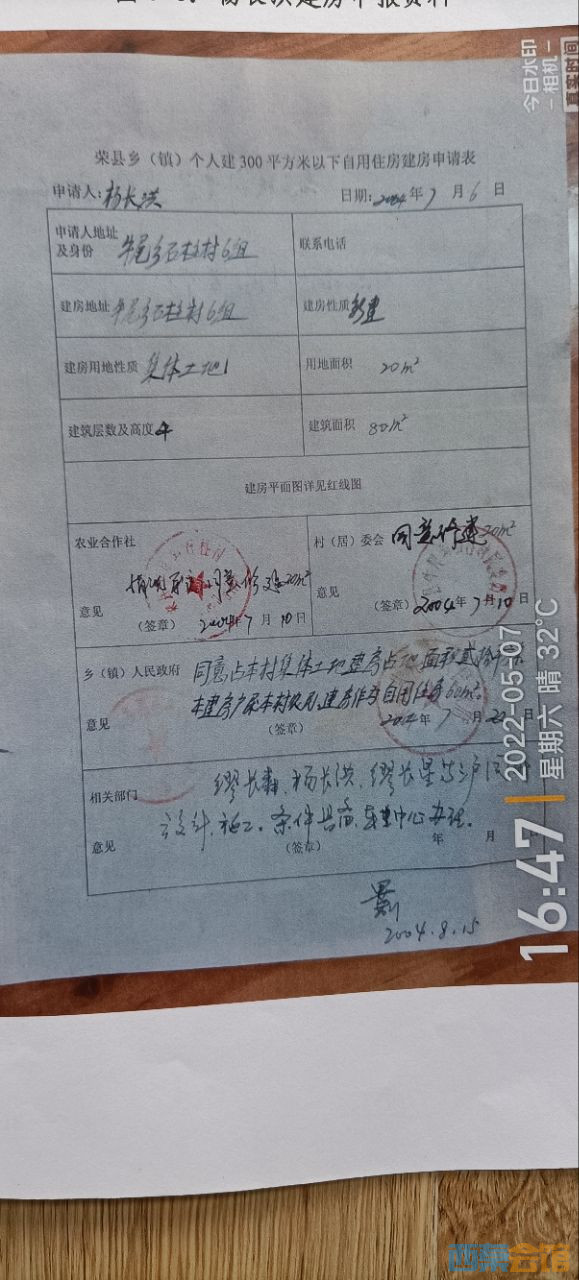 荣县乡（镇）个人建300平方米以下自用住房建房申请表
申请人：杨长洪 日期：2004年7月6日
申请人地址及身份 牛尾乡石柱村6组 联系电话
建房地址 牛尾乡石柱村6组 建房性质 新建
建房用地性质 集体土地 用地面积 20m²
建筑层数及高度 4 建筑面积 80m²
建房平面图详见红线图
农业合作社 村（居）委会 同意修建20m²
意见 同意修建20m² 意见
（签章） 2004年7月10日 （签章） 2004年7月10日
乡（镇）人民政府 同意占本村集体土地建房占地面积贰拾
本建房户系本村农民,建房作为自用住房
意见 （签章） 2004年7月22日
相关部门 缪长春、杨长洪、缪长星
设计、施工。条件具备,中心办理。
意见 （签章） 年 月
2004.8.15
今日水印
-相机-
真实时间
16:47
2022-05-07
星期六 晴 32℃
西秦会馆